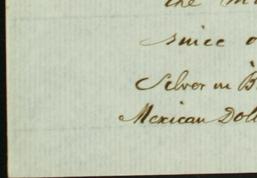 the
since
Silver in B
Mexican Doll